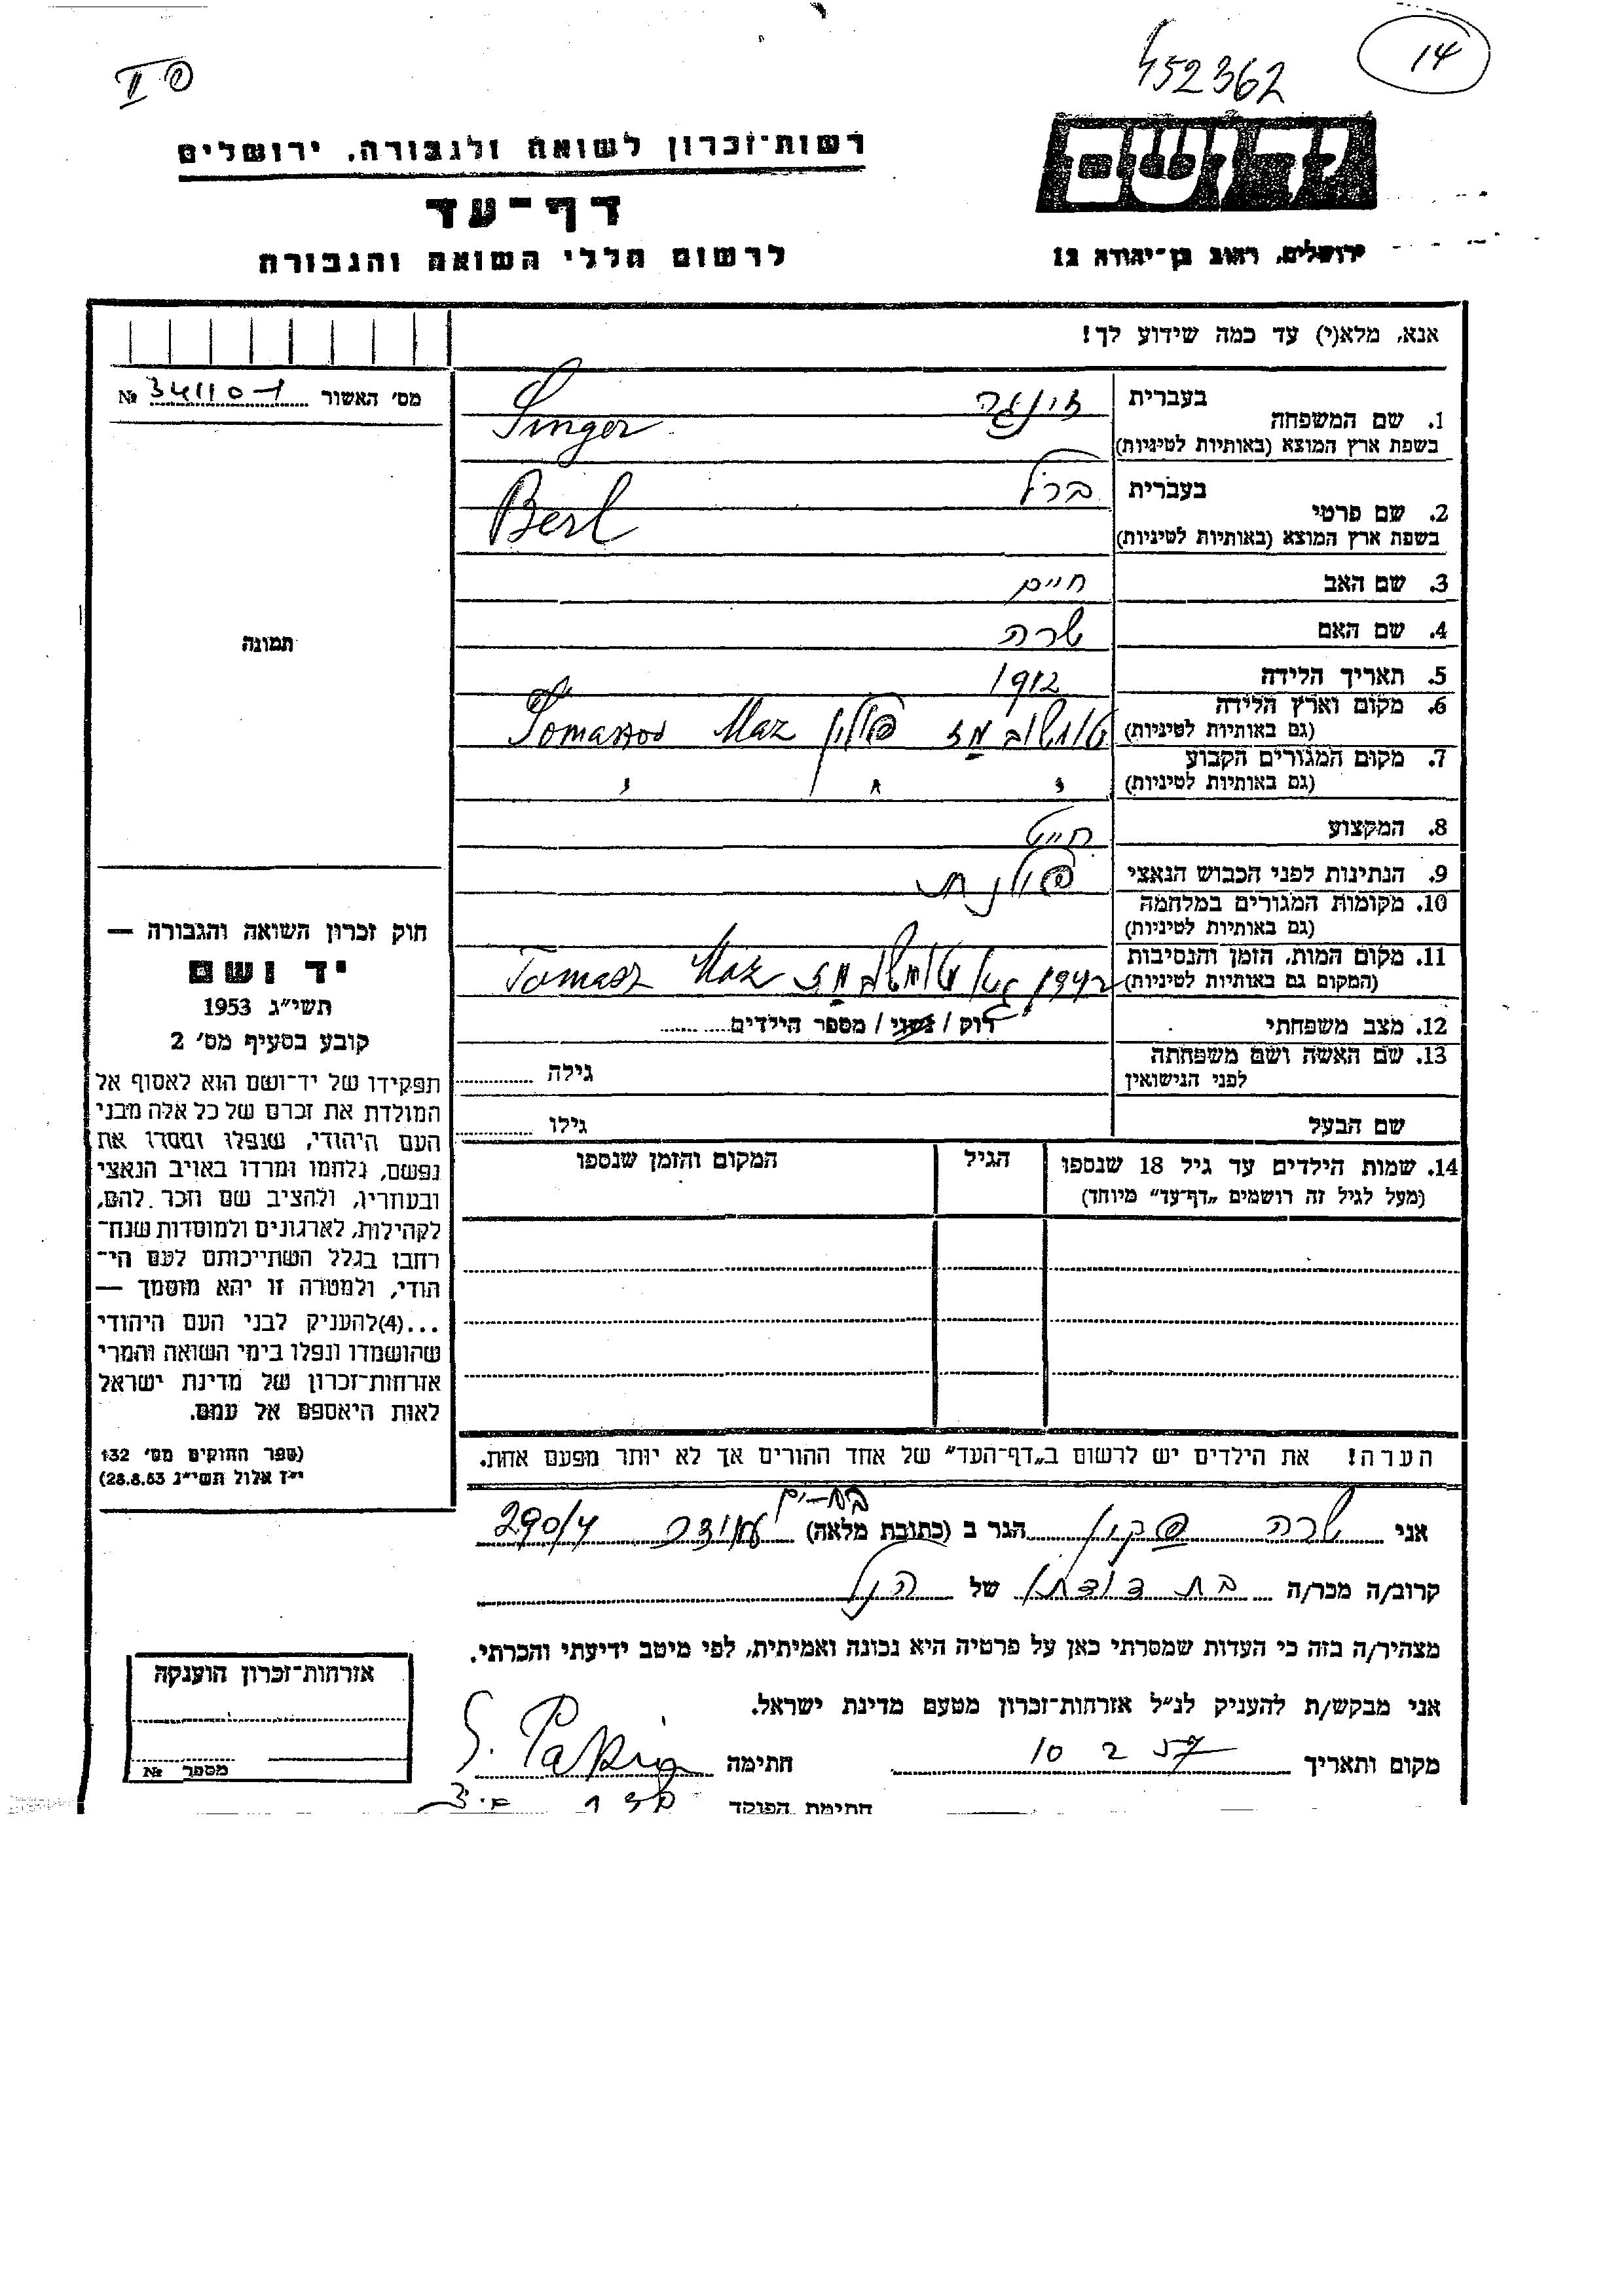 452362
14
II
רשות־זכרון לשואה ולגבורה, ירושלים
יד ושם
דף־עד
לרשום חללי השואה והגבורה
ירושלים, רחוב בן־יהודה 12
אנא, מלא(י) עד כמה שידוע לך!
מס׳ האשור 34110-1 №
1. שם המשפחה
בעברית זינגר
בשפת ארץ המוצא (באותיות לטיניות) Singer
2. שם פרטי
בעברית ברל
בשפת ארץ המוצא (באותיות לטיניות) Berl
3. שם האב חיים
4. שם האם שרה
5. תאריך הלידה 1912
6. מקום וארץ הלידה
(גם באותיות לטיניות) טומשוב מז פולין Tomaszow Maz
7. מקום המגורים הקבוע
(גם באותיות לטיניות) " " "
8. המקצוע חייט
9. הנתינות לפני הכבוש הנאצי פולנית
10. מקומות המגורים במלחמה
(גם באותיות לטיניות)
11. מקום המות, הזמן והנסיבות
(המקום גם באותיות לטיניות) 1942 גטו טומשוב מז Tomasz Maz
12. מצב משפחתי רוק / נשוי / מספר הילדים
13. שם האשה ושם משפחתה
לפני הנישואין גילה
שם הבעל גילו
14. שמות הילדים עד גיל 18 שנספו
(מעל לגיל זה רושמים „דף־עד” מיוחד)
הגיל
המקום והזמן שנספו
תמונה
חוק זכרון השואה והגבורה —
יד ושם
תשי״ג 1953
קובע בסעיף מס׳ 2
תפקידו של יד־ושם הוא לאסוף אל
המולדת את זכרם של כל אלה מבני
העם היהודי, שנפלו ומסרו את
נפשם, נלחמו ומרדו באויב הנאצי
ובעוזריו, ולהציב שם וזכר להם,
לקהילות, לארגונים ולמוסדות שנח־
רבו בגלל השתייכותם לעם הי־
הודי, ולמטרה זו יהא מוסמך —
...(4)להעניק לבני העם היהודי
שהושמדו ונפלו בימי השואה והמרי
אזרחות־זכרון של מדינת ישראל
לאות היאספם אל עמם.
(ספר החוקים מס׳ 132
י״ז אלול תשי״ג 28.8.53)
הערה! את הילדים יש לרשום ב„דף־העד” של אחד ההורים אך לא יותר מפעם אחת.
בת-ים
אני שרה פקין הגר ב (כתובת מלאה) 290/4
קרוב/ה מכר/ה בת דודתו של הנ״ל
מצהיר/ה בזה כי העדות שמסרתי כאן על פרטיה היא נכונה ואמיתית, לפי מיטב ידיעתי והכרתי.
אני מבקש/ת להעניק לנ״ל אזרחות־זכרון מטעם מדינת ישראל.
מקום ותאריך 10 2 57 חתימה S. Pakin
חתימת הפוקד
אזרחות־זכרון הוענקה
מספר №